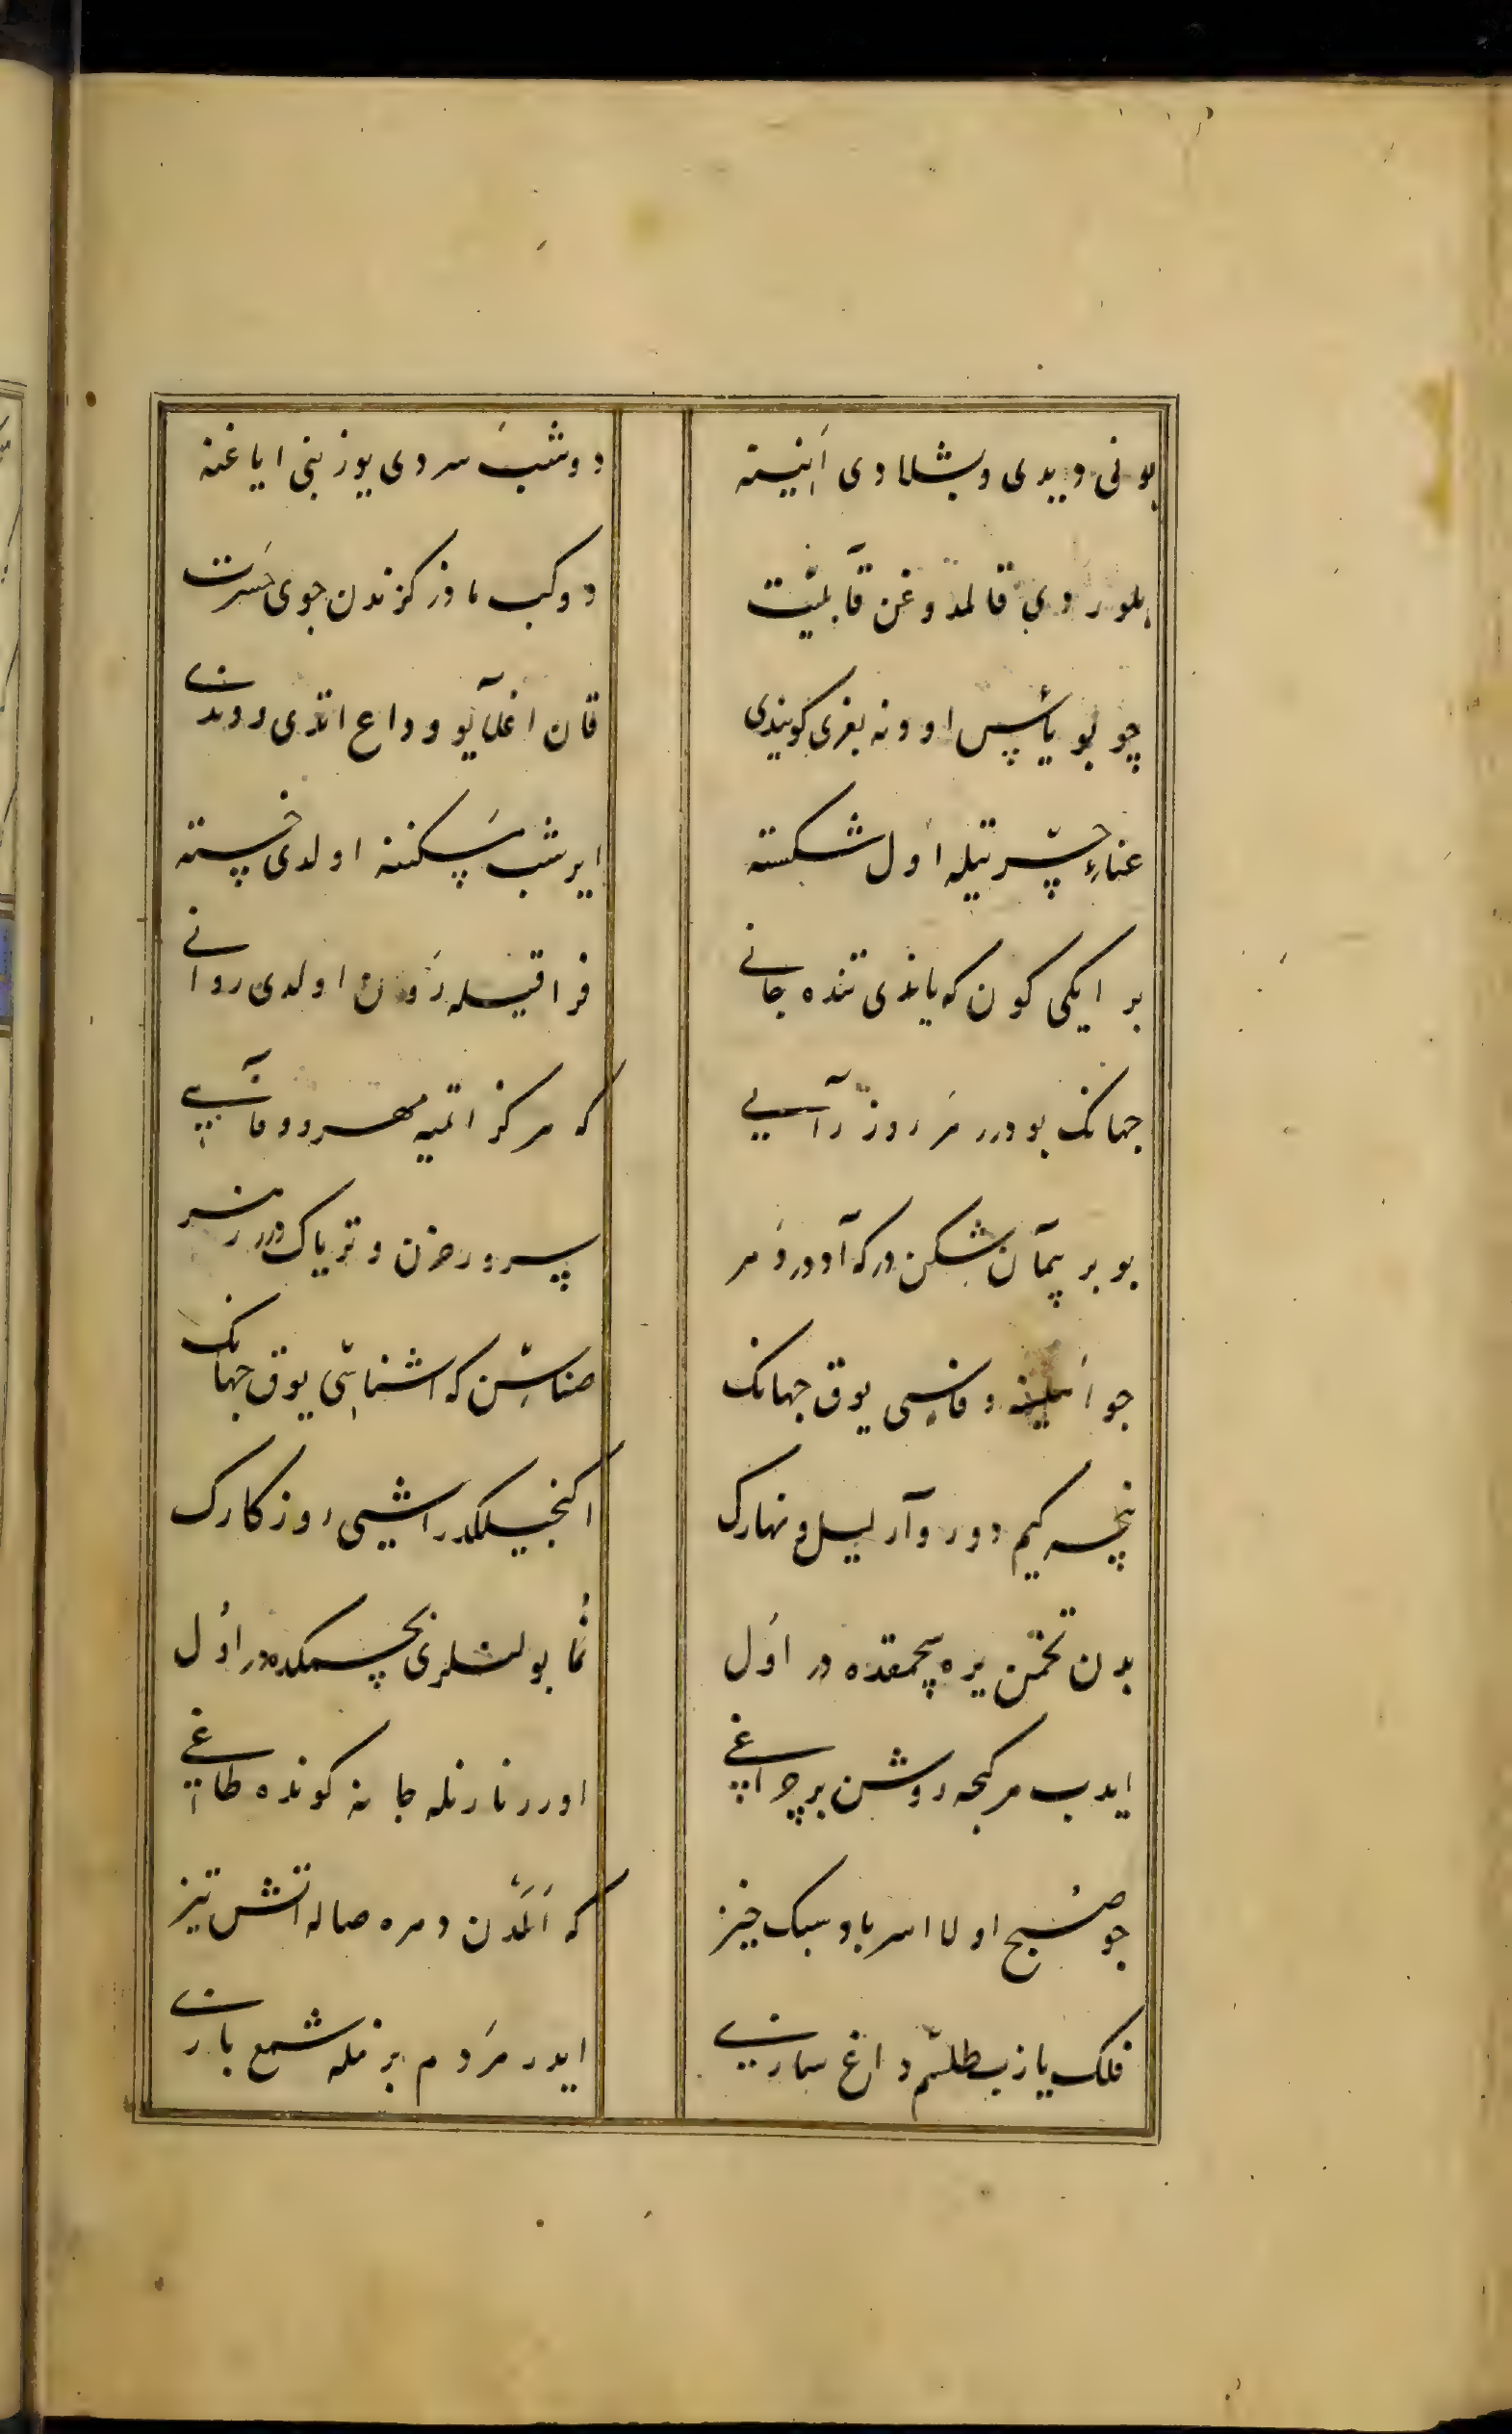 بونی دیدی و بشلادی انینه
دوشب سردی یوزینی ایاغنه
بلوردی قالمدوغن قابلیت
دوکب ماوز کزندن جوی حسرت
چو بو یاسس اودنه بغری کویندی
قان اغلایو وداع اتدی دوندی
عناء حسرتیله اول شکسته
ایرشب مسکننه اولدی خسته
بر ایکی کون که یاندی تنده جانی
فراقیله روان اولدی روانی
جهانک بودرر هر روز رایی
که هرکز اتمیه مهر و وفایی
بو بر پیمان شکن درکه اودر و هر
سرور حزن و تریاک درر زهر
جوانلیغنه وفاسی یوق جهانک
صناسن که اشناسی یوق جهانک
نچه کیم دور وار لیل و نهارک
اکنجیلکدر ایشی روزکارک
بدن تخمن یره سچمقده در اول
نما بولنلری بچمکده در اول
ایدب هر کیجه روشن بر چراغی
اورر نارنله جانه کونده طاغی
جو صبح اولا اسر باد سبک خیز
که المدن دمره صاله اتش تیز
فلک یازب طلسم داغ ساری
ایدر هر دم بزمله شمع بازی